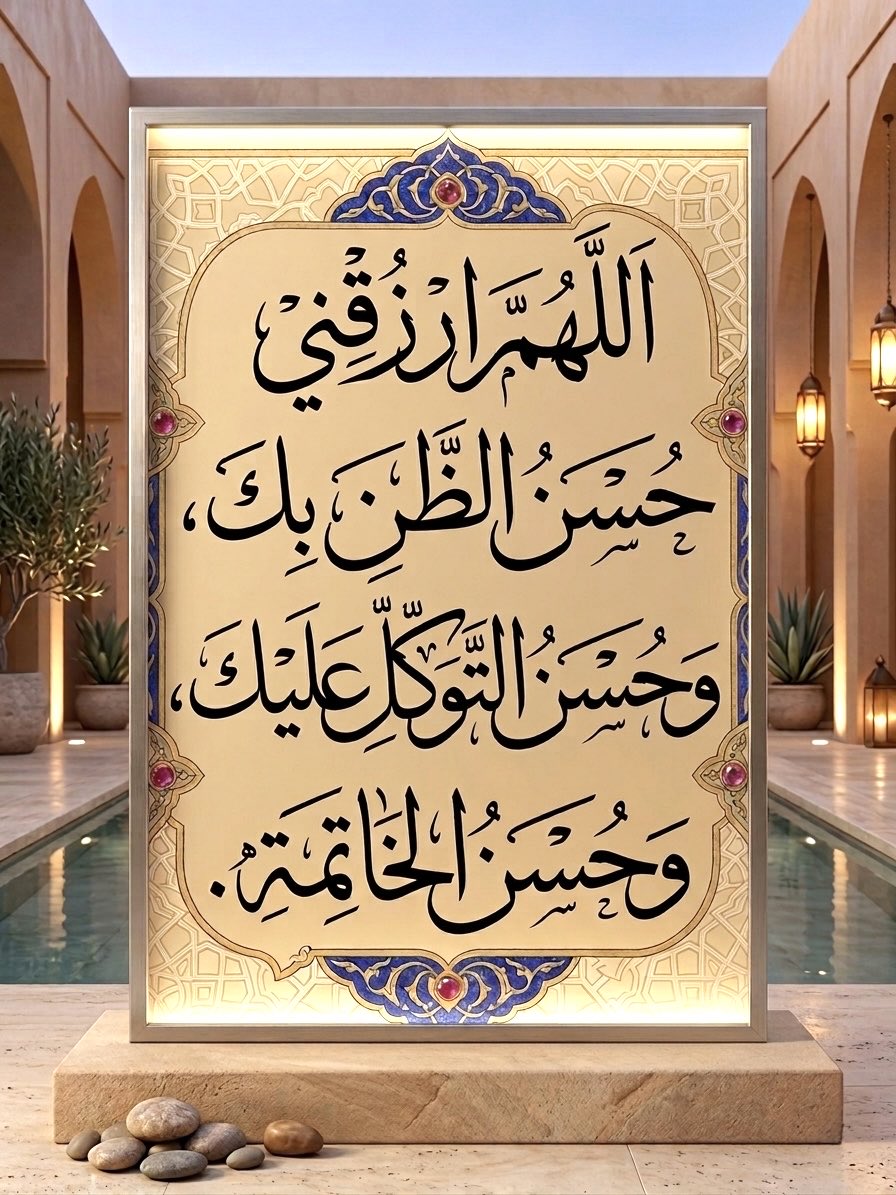 اَللَّهُمَّ ارْزُقْنِيْ
حُسْنَ الظَّنِ بِكَ،
وَحُسْنَ التَّوَكُّلِّ عَلَيْكَ،
وَحُسْنَ الخَاتِمَةِ.